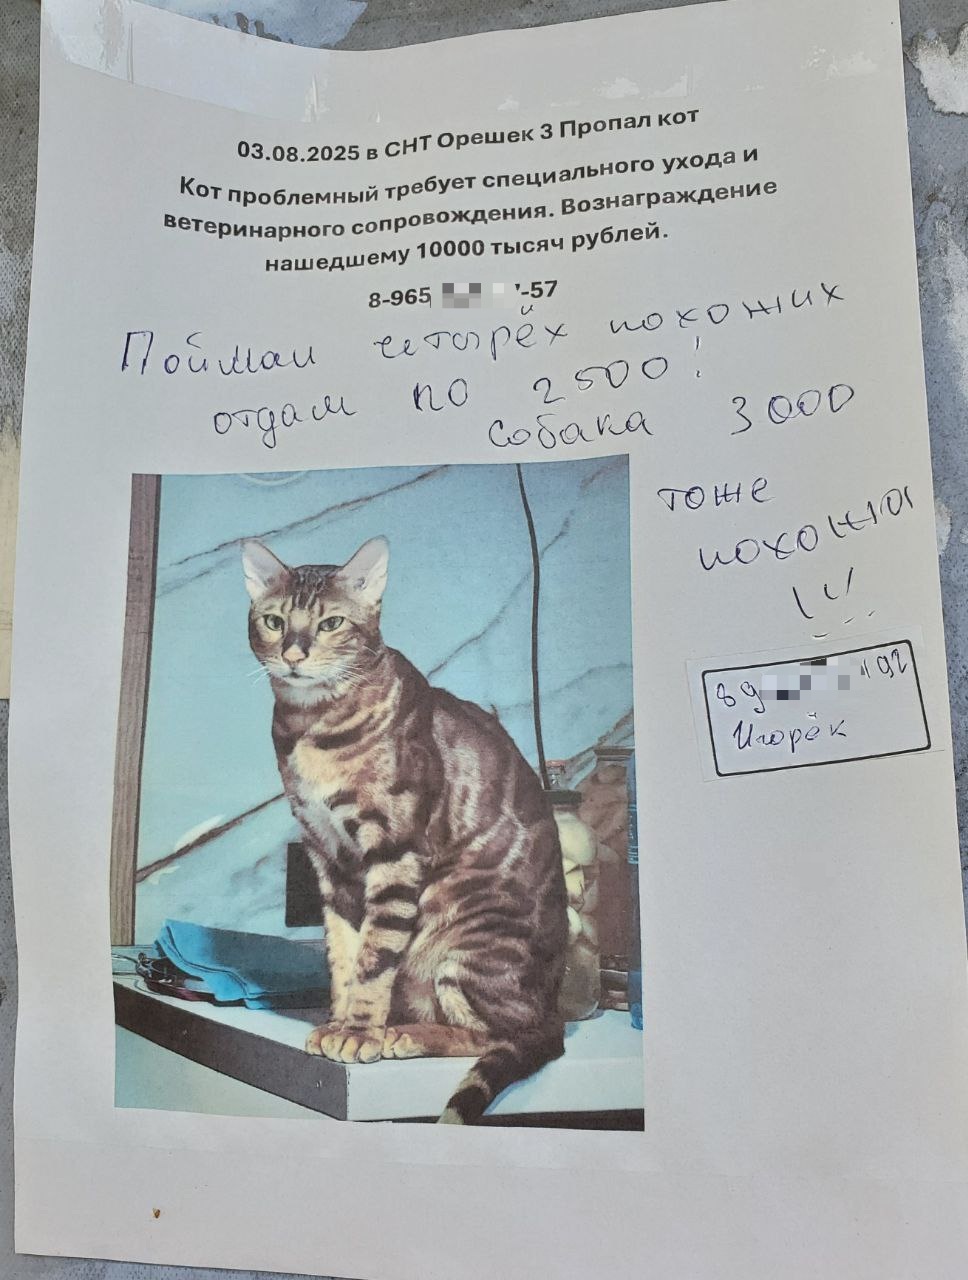 03.08.2025 в СНТ Орешек 3 Пропал кот
Кот проблемный требует специального ухода и
ветеринарного сопровождения. Вознаграждение
нашедшему 10000 тысяч рублей.
8-965 -57
Поймал четырёх похожих
отдам по 2500!
Собака 3000
тоже
похожа
89 92
Игорёк